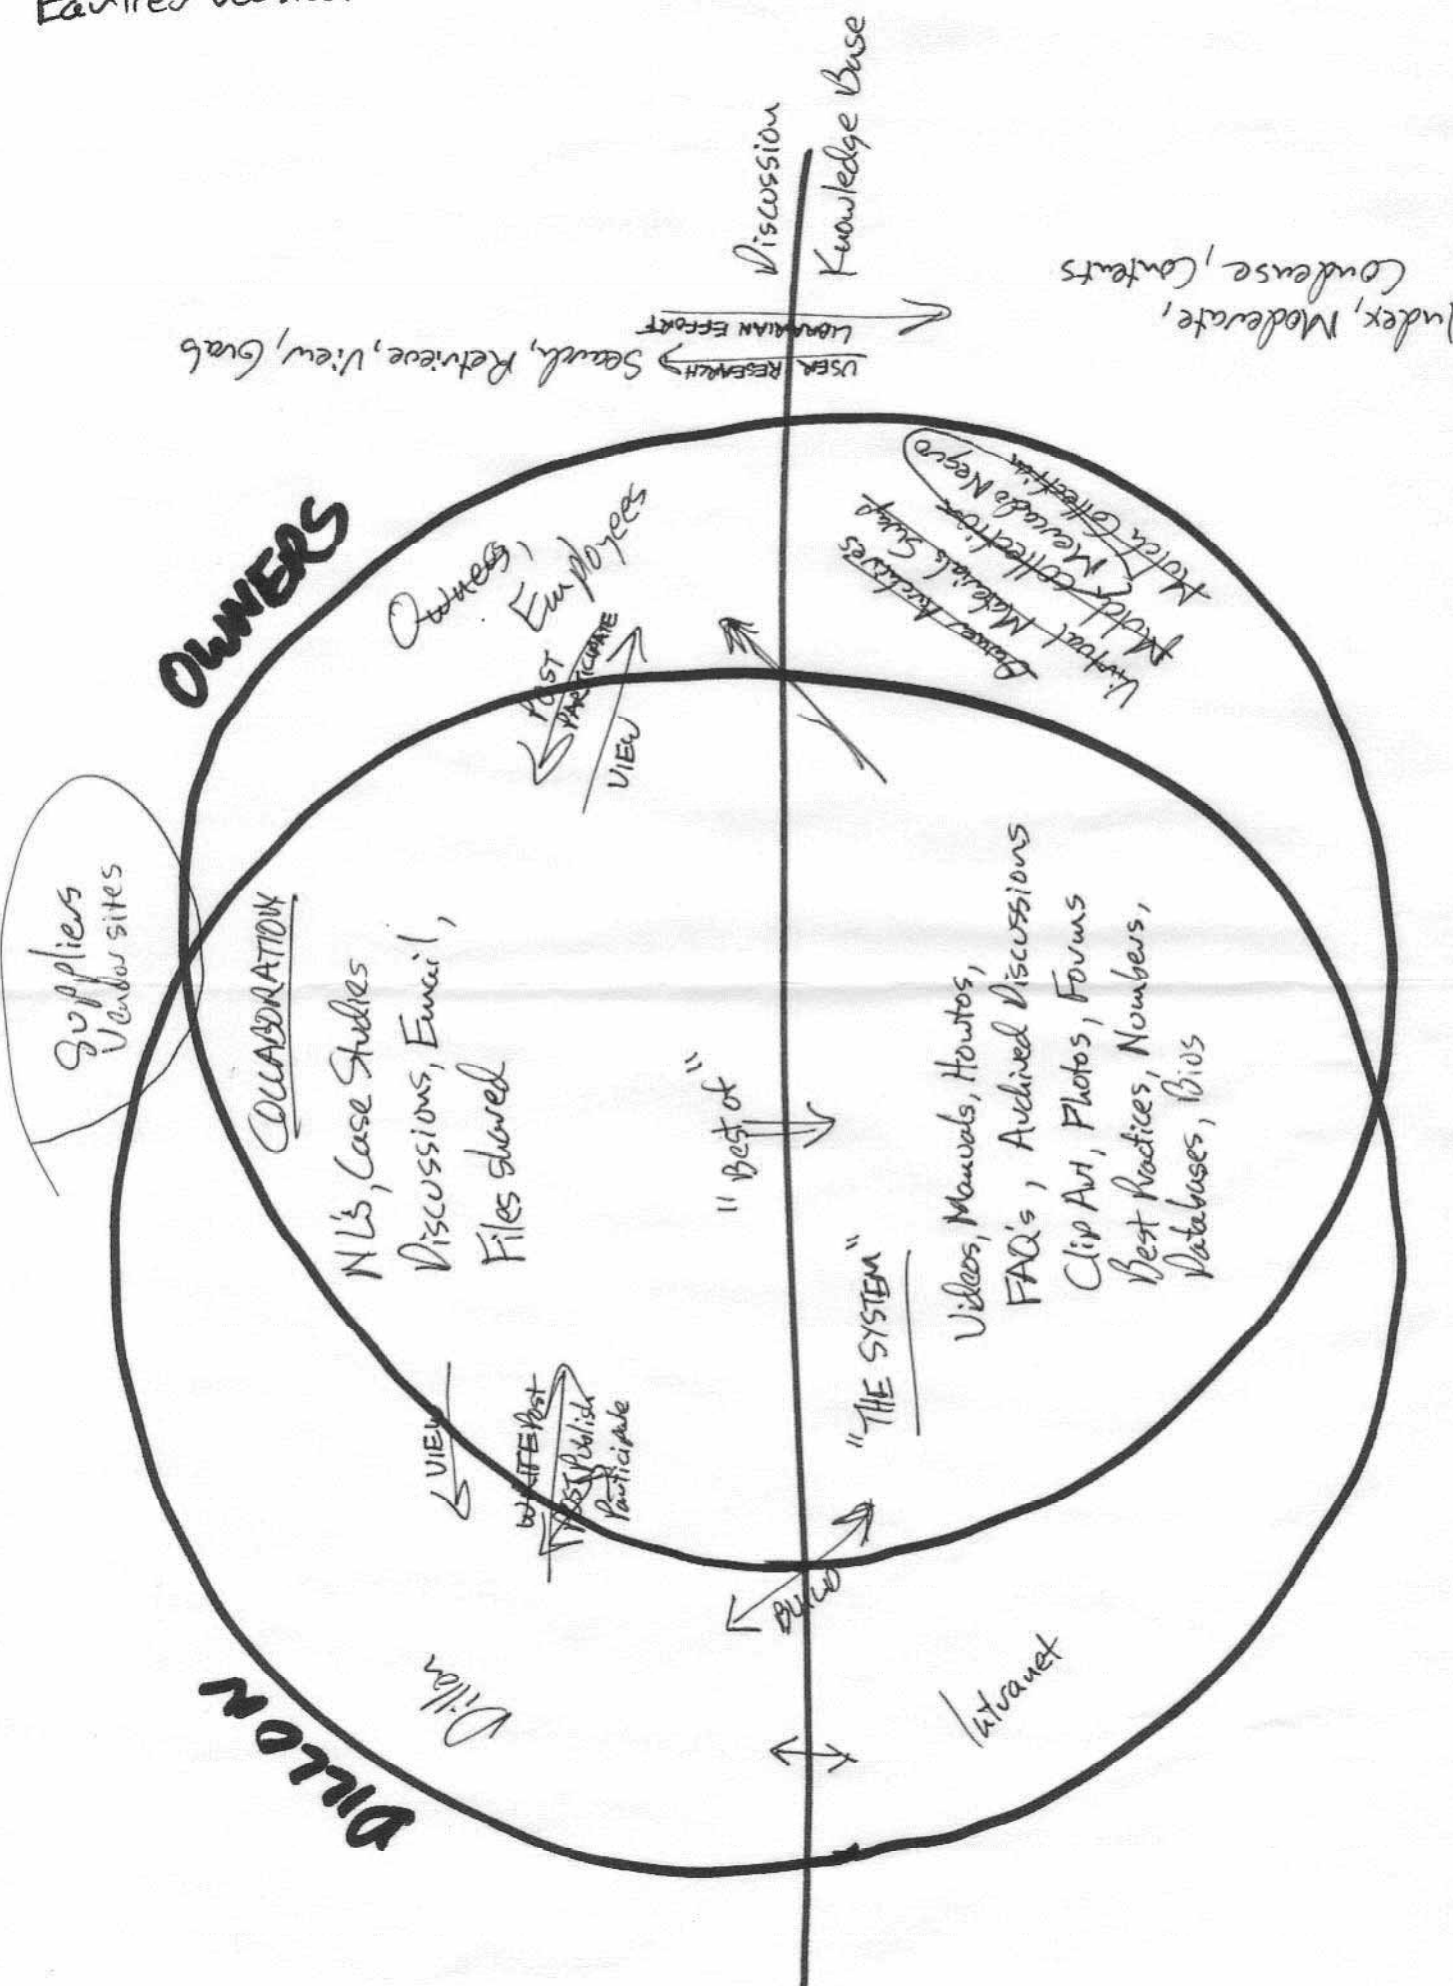 Discussion
Knowledge Base
Index, Moderate,
Condense, Contents
LIBRARIAN EFFORT
USER RESEARCH
Search, Retrieve, View, Grab
OWNERS
Owners,
Employees
POST
PARTICIPATE
VIEW
Owner Archives
Virtual Materials Swap
Mold Collection
Mercado Negro
Motch Collection
Suppliers
Vendor sites
COLLABORATION
NL's, Case Studies
Discussions, Email,
Files shared
"Best of"
"THE SYSTEM"
Videos, Manuals, Howtos,
FAQ's, Archived Discussions
Clip Art, Photos, Forums
Best Practices, Numbers,
Databases, Bios
VIEW
WRITE Post
POST Publish
Participate
BUILD
DILLON
Dillon
Intranet